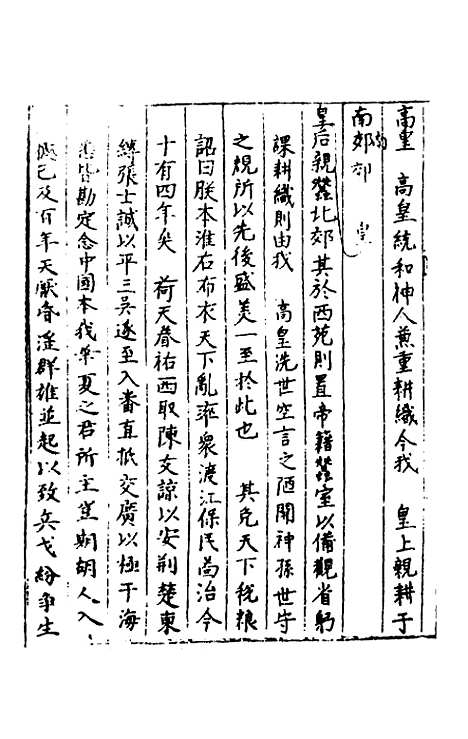 高皇　高皇統和神人兼重耕織今我　皇上親耕于
南郊　皇
皇后親蠶北郊其於西苑則置帝籍蠶室以備觀省躬
課耕織則由我　高皇洗世空言之陋開神孫世守
之規所以先後盛美一至於此也　其免天下稅粮
詔曰朕本淮右布衣天下亂率衆渡江保民為治今
十有四年矣　荷天眷祐西取陳友諒以安荆楚東
縛張士誠以平三吳遂至入番直抵交廣以極于海
悉皆勘定念中國本我華夏之君所主豈期胡人入
已及百年天厭昏淫群雄並起以致兵戈紛爭生